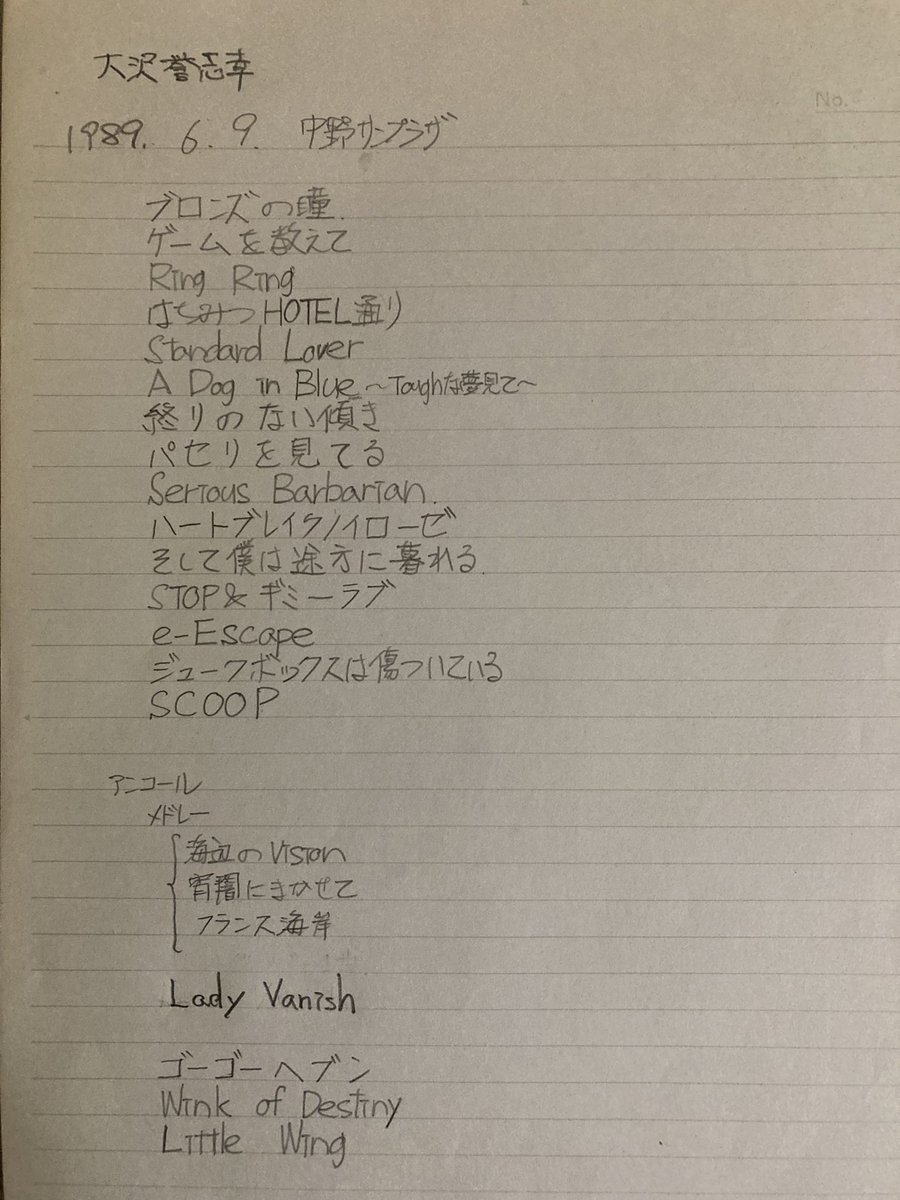 大沢誉志幸
No.
1989. 6. 9. 中野サンプラザ
ブロンズの瞳.
ゲームを教えて
Ring Ring
はちみつHOTEL通り
Standard Lover
A Dog in Blue ～Toughな夢見て～
終りのない傾き
パセリを見てる
Serious Barbarian.
ハートブレイクノイローゼ
そして僕は途方に暮れる.
STOP&ギミーラブ
e-Escape
ジュークボックスは傷ついている
SCOOP
アンコール
メドレー
海辺のVision
宵闇にまかせて
フランス海岸
Lady Vanish
ゴーゴーヘブン
Wink of Destiny
Little Wing